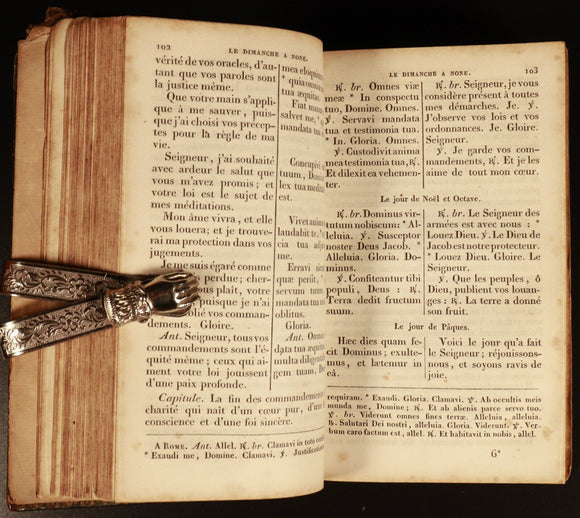 102
LE DIMANCHE A NONE.
vérité de vos oracles, d'au-
tant que vos paroles sont
la justice même.
Que votre main s'appli-
que à me sauver, puis-
que j'ai choisi vos précep-
tes pour la règle de ma
vie.
Seigneur, j'ai souhaité
avec ardeur le salut que
vous m'avez promis; et
votre loi est le sujet de
mes méditations.
Mon âme vivra, et elle
vous louera; et je trouve-
rai ma protection dans vos
jugements.
Je me suis égaré comme
perdue; cher-
plaît, votre
puisque je n'ai
oublié vos comman-
dements. Gloire.
Ant. Seigneur, tous vos
commandements sont l'é-
quité même; ceux qui ai-
ment votre loi jouissent
d'une paix profonde.
mea eloquium
* quia omnia
tua æquitas
Fiat manus
salvet me,
mandata tua
Concupivi
tuum, Domine
lex tua medi
est.
Vivet anima
laudabit te,
cia tua adju
me.
Erravi sicut
quæ periit,
servum tuum
mandata tua
oblitus.
Gloria.
Ant. Omnia
data tua æquitas
multa diligen
gem tuam. De
Capitule. La fin des commandements
charité qui naît d'un cœur pur, d'une
conscience et d'une foi sincère.
A ROME. Ant. Allel. ℟. br. Clamavi in toto corde
* Exaudi me, Domine. Clamavi. ℣. Justificationes
LE DIMANCHE A NONE.
103
℟. br. Omnes viæ
meæ * In conspectu
tuo, Domine. Omnes.
℣. Servavi mandata
tua et testimonia tua.
* In. Gloria. Omnes.
℣. Custodivit anima
mea testimonia tua, ℟.
Et dilexit ea vehemen-
ter.
℟. br. Seigneur, je vous
considère présent à toutes
mes démarches. Je. ℣.
J'observe vos lois et vos
ordonnances. Je. Gloire.
Seigneur.
℣. Je garde vos com-
mandements, ℟. Et je les
aime de tout mon cœur.
Le jour de Noël et Octave.
℟. br. Dominus vir-
tutum nobiscum: * Al-
leluia. ℣. Susceptor
noster Deus Jacob. *
Alleluia. Gloria. Do-
minus.
℣. Confiteantur tibi
populi, Deus: ℟.
Terra dedit fructum
suum.
℟. br. Le Seigneur des
armées est avec nous: *
Louez Dieu. ℣. Le Dieu de
Jacob est notre protecteur.
* Louez Dieu. Gloire. Le
Seigneur.
℣. Que les peuples, ô
Dieu, publient vos louan-
ges: ℟. La terre a donné
son fruit.
Le jour de Pâques.
Hæc dies quam fe-
cit Dominus; exulte-
mus, et lætemur in
eâ.
Voici le jour qu'a fait
le Seigneur; réjouissons-
nous, et soyons ravis de
joie.
requiram. * Exaudi. Gloria. Clamavi. ℣. Ab occultis meis
munda me, Domine; ℟. Et ab alienis parce servo tuo.
℣. br. Viderunt omnes fines terræ. Alleluia, alleluia.
℟. Salutari Dei nostri, alleluia. Gloria. Viderunt. ℣. Ver-
bum caro factum est, allel. ℟. Et habitavit in nobis, allel.
6*